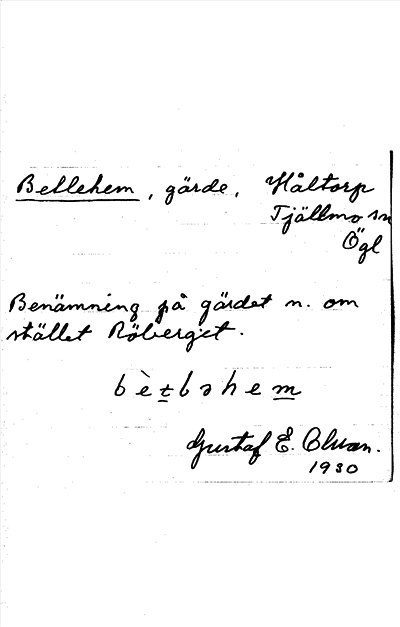 Betlehem, gärde, Håltorp
Tjällmo sn
Ögl
Benämning på gärdet n. om
stället Röberget.
bèṯləhem̲
Gustaf E. Olsson.
1930